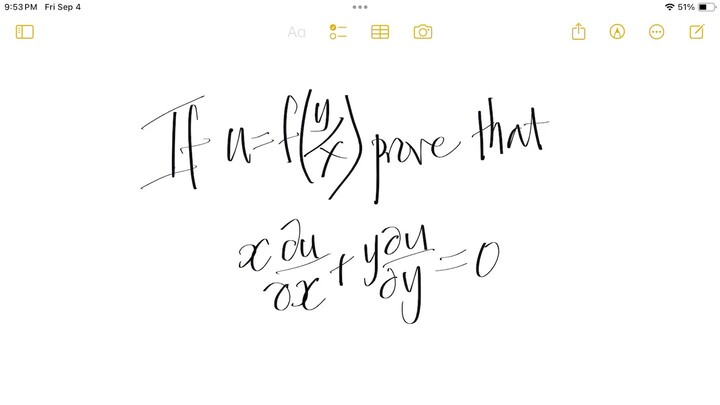 9:53 PM Fri Sep 4
51%
Aa
If u=f(y/x) prove that
x ∂u/∂x + y ∂u/∂y = 0